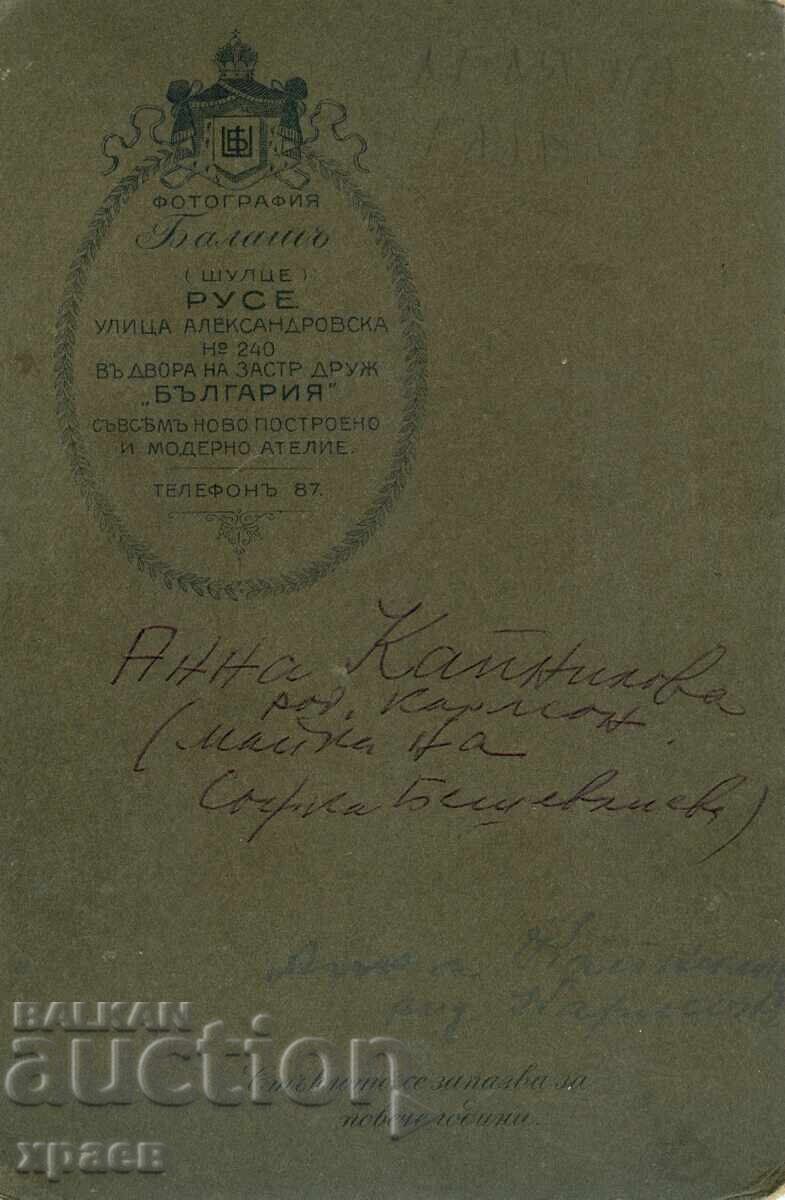 ФОТОГРАФИЯ
Балашъ
(ШУЛЦЕ)
РУСЕ.
УЛИЦА АЛЕКСАНДРОВСКА
№ 240
ВЪ ДВОРА НА ЗАСТР. ДРУЖ
„БЪЛГАРИЯ"
СЪВСѢМЪ НОВО ПОСТРОЕНО
И МОДЕРНО АТЕЛИЕ.
ТЕЛЕФОНЪ 87.
Анна Капнилова
род. Кармон.
(майка на
Софка Бешевлиева)
Анна
род
BALKAN
auction
храев
Стъклото се запазва за
повече години.